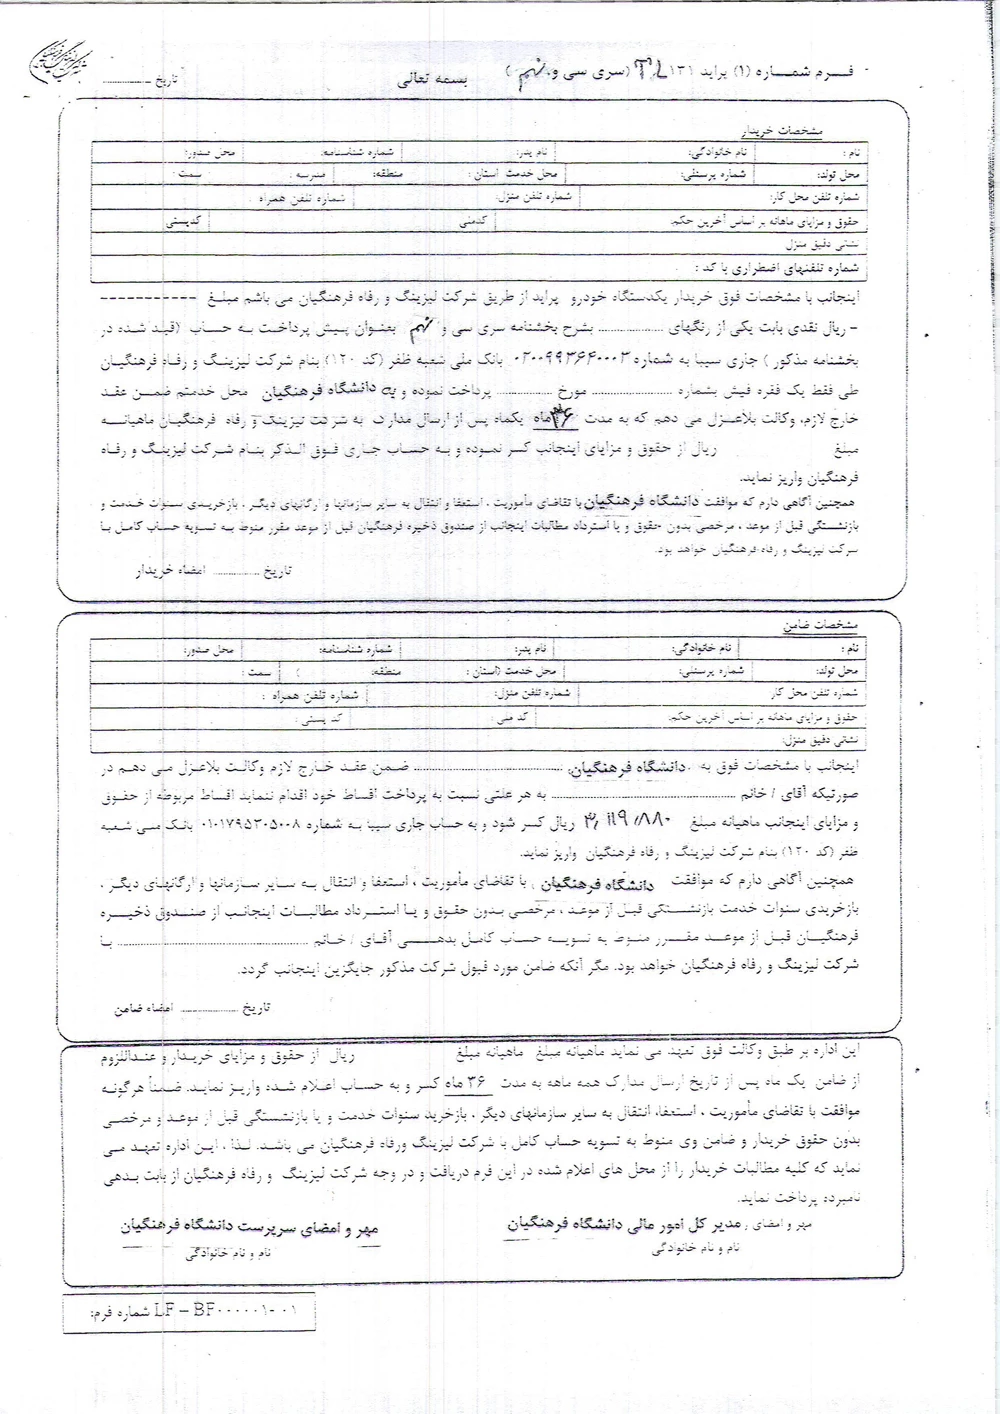 فـرم شمـاره (۱) پراید ۱۳۱ TL (سری سی و نهم)
بسمه تعالی
تاریخ ............
مشخصات خریدار
نام : نام خانوادگی: نام پدر: شماره شناسنامه: محل صدور:
محل تولد: شماره پرسنلی: محل خدمت استان : منطقه: مدرسه : سمت :
شماره تلفن محل کار: شماره تلفن منزل: شماره تلفن همراه :
حقوق و مزایای ماهانه بر اساس آخرین حکم: کدملی کدپستی
نشانی دقیق منزل
شماره تلفنهای اضطراری با کد :
اینجانب با مشخصات فوق خریدار یکدستگاه خودرو پراید از طریق شرکت لیزینگ و رفاه فرهنگیان می باشم مبلـغ -----------
- ریال نقدی بابت یکی از رنگهای .................. بشرح بخشنامه سری سی و نهم بعنوان پیش پرداخت به حساب (قید شده در
بخشنامه مذکور ) جاری سیبا به شماره ۰۲۰۰۹۹۳۶۴۰۰۰۳ بانک ملی شعبه ظفر (کد ۱۲۰) بنام شرکت لیزینگ و رفاه فرهنگیان
طی فقط یک فقره فیش بشماره .................. مورخ ............... پرداخت نموده و به دانشگاه فرهنگیان محل خدمتم ضمـن عقـد
خارج لازم، وکالت بلاعـزل می دهم که به مدت ۳۶ ماه یکماه پس از ارسال مدارک به شرکت لیزینگ و رفاه فرهنگیان ماهیانـه
مبلغ ریال از حقوق و مزایای اینجانب کسر نموده و به حساب جاری فوق الذکر بنام شرکت لیزینگ و رفـاه
فرهنگیان واریز نماید.
همچنین آگاهی دارم که موافقت دانشگاه فرهنگیان با تقاضای مأموریت ، استعفا و انتقال به سایر سازمانها و ارگانهای دیگر ، بازخریدی سنوات خدمت و
بازنشستگی قبل از موعد ، مرخصی بدون حقوق و یا استرداد مطالبات اینجانب از صندوق ذخیره فرهنگیان قبل از موعد مقرر منوط به تسویه حساب کامل بـا
شرکت لیزینگ و رفاه فرهنگیان خواهد بود.
تاریخ .............. امضاء خریدار
مشخصات ضامن
نام : نام خانوادگی: نام پدر: شماره شناسنامه: محل صدور:
محل تولد: شماره پرسنلی: محل خدمت (استان : منطقه: ) سمت :
شماره تلفن محل کار شماره تلفن منزل: شماره تلفن همراه :
حقوق و مزایای ماهانه بر اساس آخرین حکم: کد ملی : کد پستی :
نشانی دقیق منزل:
اینجانب با مشخصات فوق به دانشگاه فرهنگیان .................. ضمـن عقد خارج لازم وکالت بلاعزل مـی دهـم در
صورتیکه آقای / خانم .................. به هر علتی نسبت به پرداخت اقساط خود اقدام ننماید اقساط مربوطه از حقوق
و مزایای اینجانب ماهیانه مبلغ ۳/۱۱۹/۸۸۰ ریال کسر شود و به حساب جاری سیبا به شماره ۰۱۰۱۷۹۵۳۰۵۰۰۸ بانک ملی شعبه
ظفر (کد ۱۲۰) بنام شرکت لیزینگ و رفاه فرهنگیان واریز نماید.
همچنین آگاهی دارم که موافقت دانشگاه فرهنگیان با تقاضای مأموریت ، استعفا و انتقال به سایر سازمانها و ارگانهای دیگـر ،
بازخریدی سنوات خدمت بازنشستگی قبل از موعد ، مرخصی بدون حقوق و یـا استـرداد مطالبـات اینجانـب از صنـدوق ذخیـره
فرهنگیـان قبل از موعد مقـرر منوط به تسویـه حساب کامل بدهـی آقـای / خانـم .................. بـا
شرکت لیزینگ و رفاه فرهنگیان خواهد بود. مگر آنکه ضامن مورد قبول شرکت مذکور جایگزین اینجانب گردد.
تاریخ .............. امضاء ضامن
این اداره بر طبق وکالت فوق تعهد می نماید ماهیانه مبلغ ماهیانه مبلغ ریال از حقوق و مزایای خریدار و عنداللزوم
از ضامن یک ماه پس از تاریخ ارسال مدارک همه ماهه به مدت ۳۶ ماه کسر و به حساب اعلام شده واریز نماید. ضمناً هرگونه
موافقت با تقاضای مأموریت ، استعفا، انتقال به سایر سازمانهای دیگر ، بازخرید سنوات خدمت و یا بازنشستگی قبل از موعد و مرخصی
بدون حقوق خریدار و ضامن وی منوط به تسویه حساب کامل با شرکت لیزینگ ورفاه فرهنگیان می باشد. لـذا ، ایـن اداره تعهـد مـی
نماید که کلیه مطالبات خریدار را از محل های اعلام شده در این فرم دریافت و در وجه شرکت لیزینگ و رفاه فرهنگیان از بابت بدهی
نامبرده پرداخت نماید.
مهر و امضای مدیر کل امور مالی دانشگاه فرهنگیان
نام و نام خانوادگی
مهر و امضای سرپرست دانشگاه فرهنگیان
نام و نام خانوادگی
شماره فرم: LF – BF۰۰۰۰۰۱-۰۱